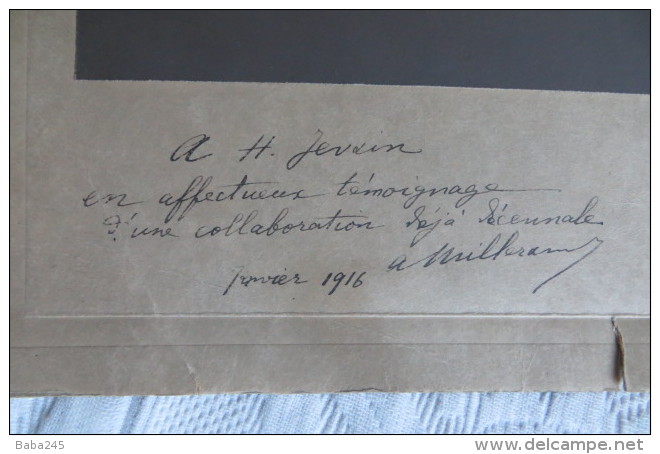 A H. Jevain
en affectueux témoignage
d'une collaboration déjà décennale
janvier 1916 A Milhram
Baba245
www.delcampe.net